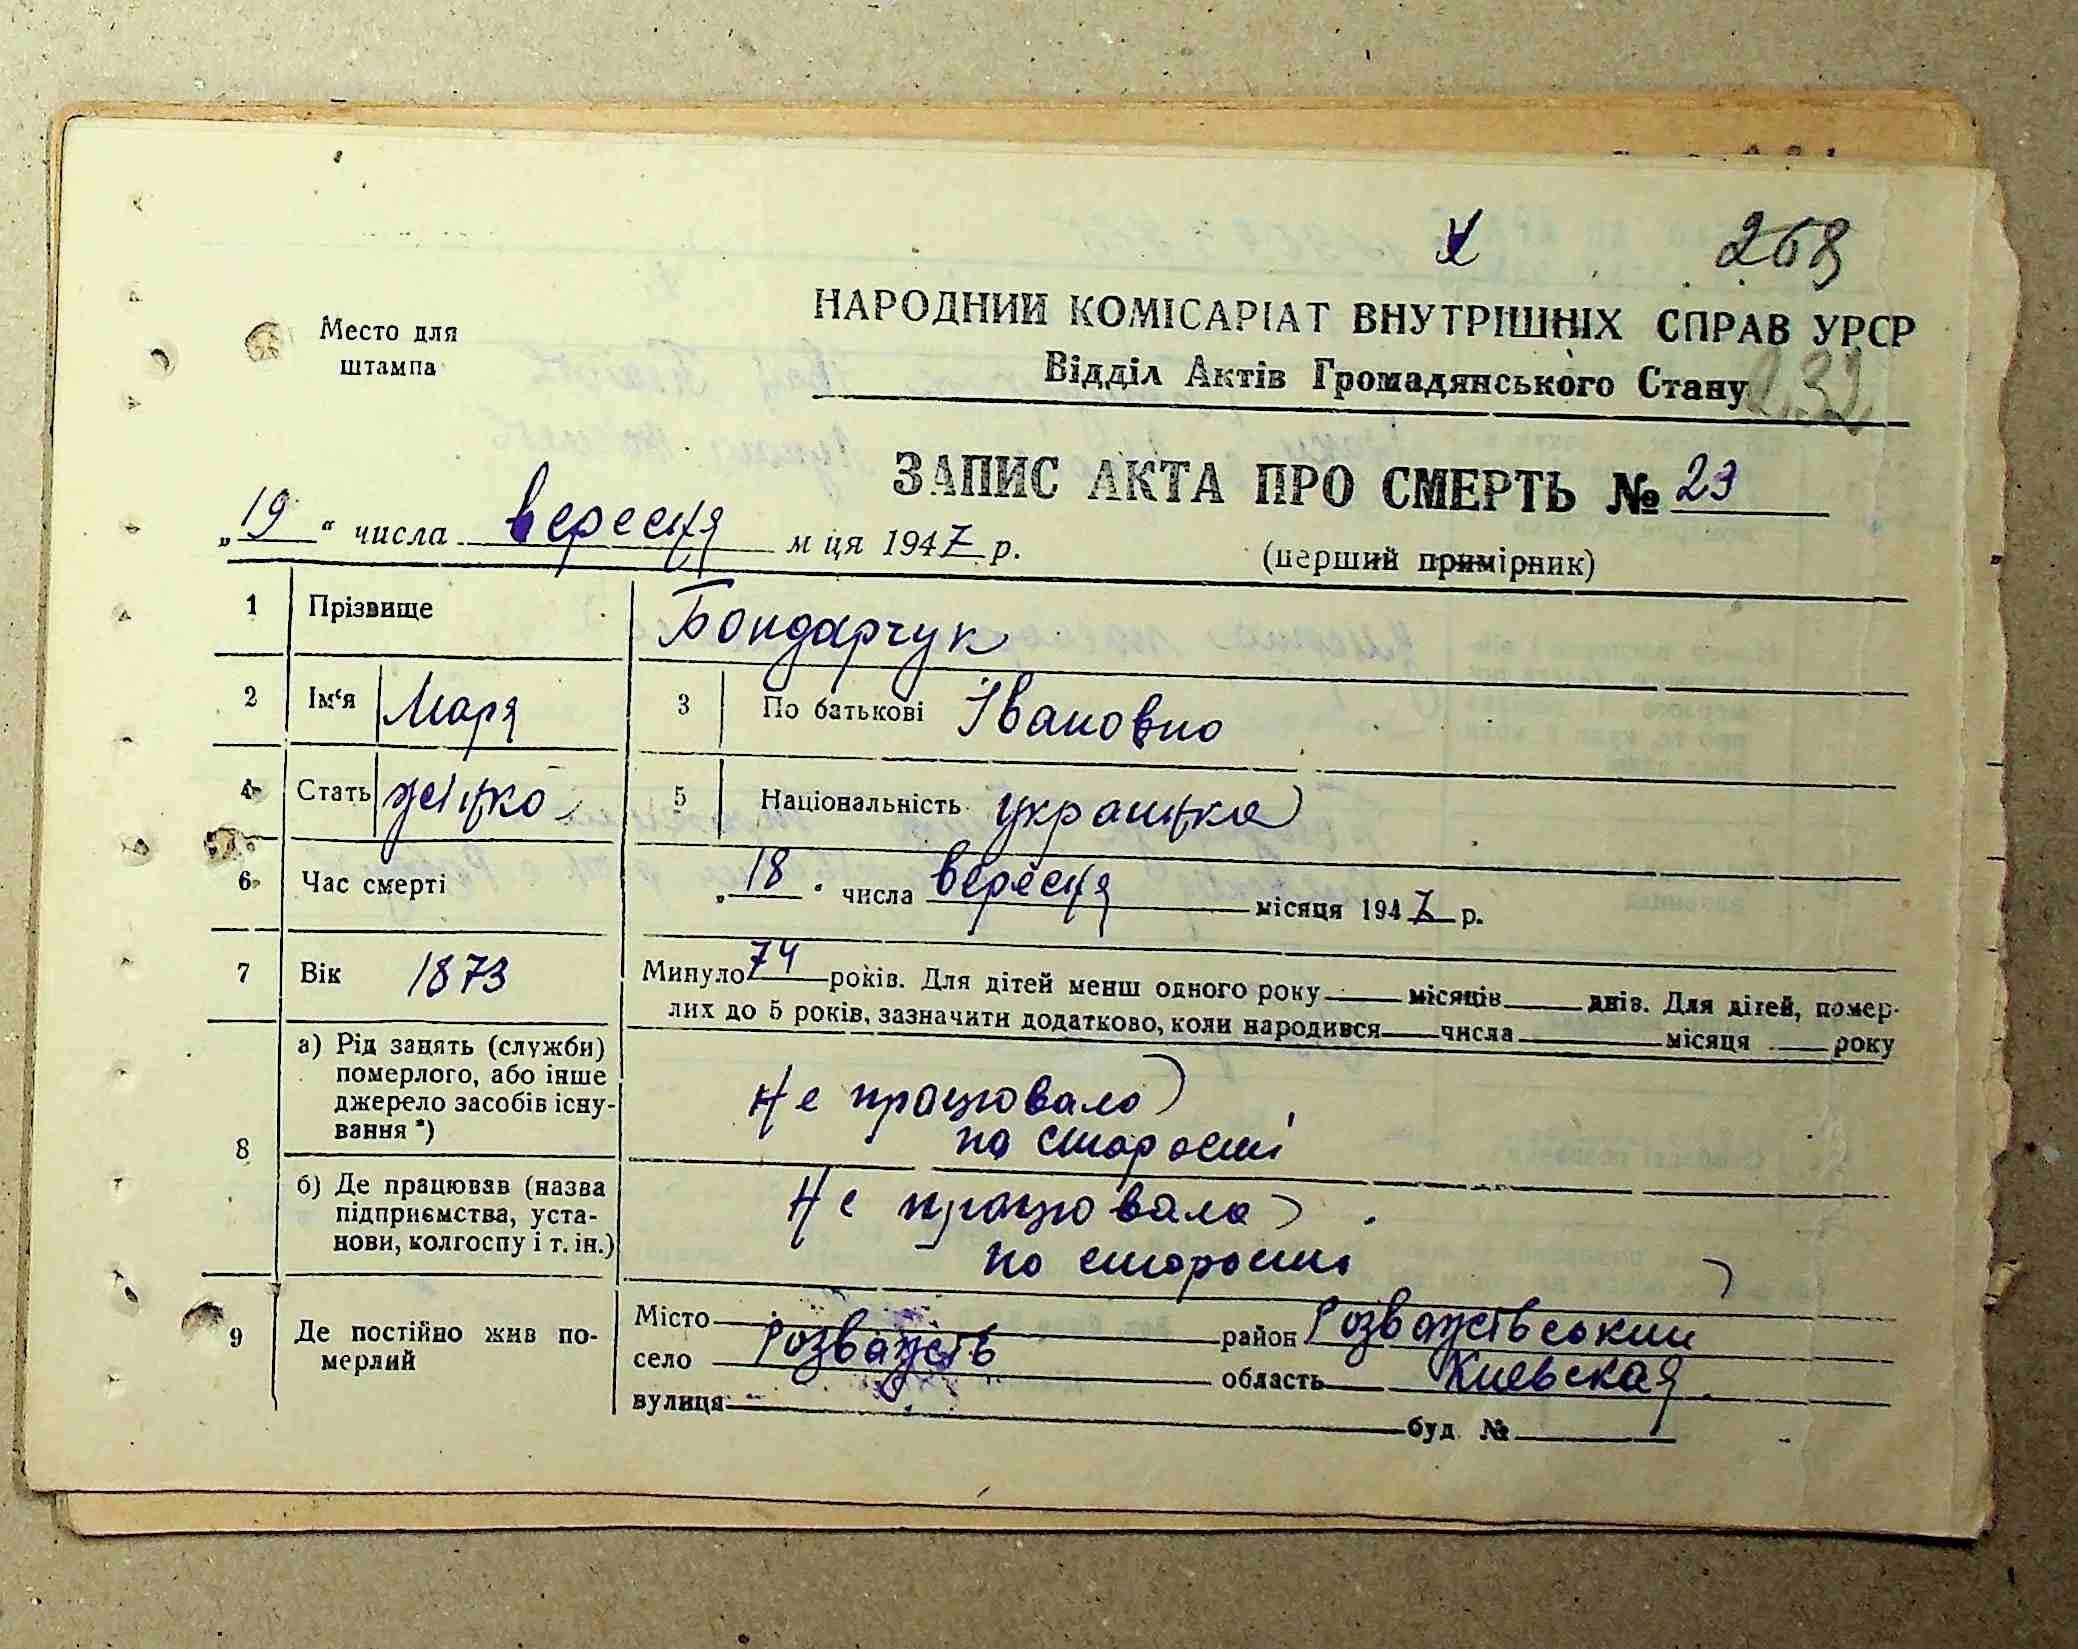 268
Место для
штампа
НАРОДНИЙ КОМІСАРІАТ ВНУТРІШНІХ СПРАВ УРСР
Відділ Актів Громадянського Стану
232
ЗАПИС АКТА ПРО СМЕРТЬ № 23
„19“ числа вересня м ця 1947 р.
(перший примірник)
1 Прізвище Бондарчук
2 Ім‘я Маря 3 По батькові Івановно
4 Стать жінко 5 Національність украінка
6 Час смерті „18“ числа вересня місяця 1947 р.
7 Вік 1873 Минуло 74 років. Для дітей менш одного року місяців днів. Для дітей, помер-
лих до 5 років, зазначити додатково, коли народився числа місяця року
8 а) Рід занять (служби)
померлого, або інше
джерело засобів існу-
вання *)
Не працювало
по старості
б) Де працював (назва
підприємства, уста-
нови, колгоспу і т. ін.)
Не працювала
по старости
9 Де постійно жив по-
мерлий
Місто район Розважевський
село Розважев область Киевская
вулиця буд. №